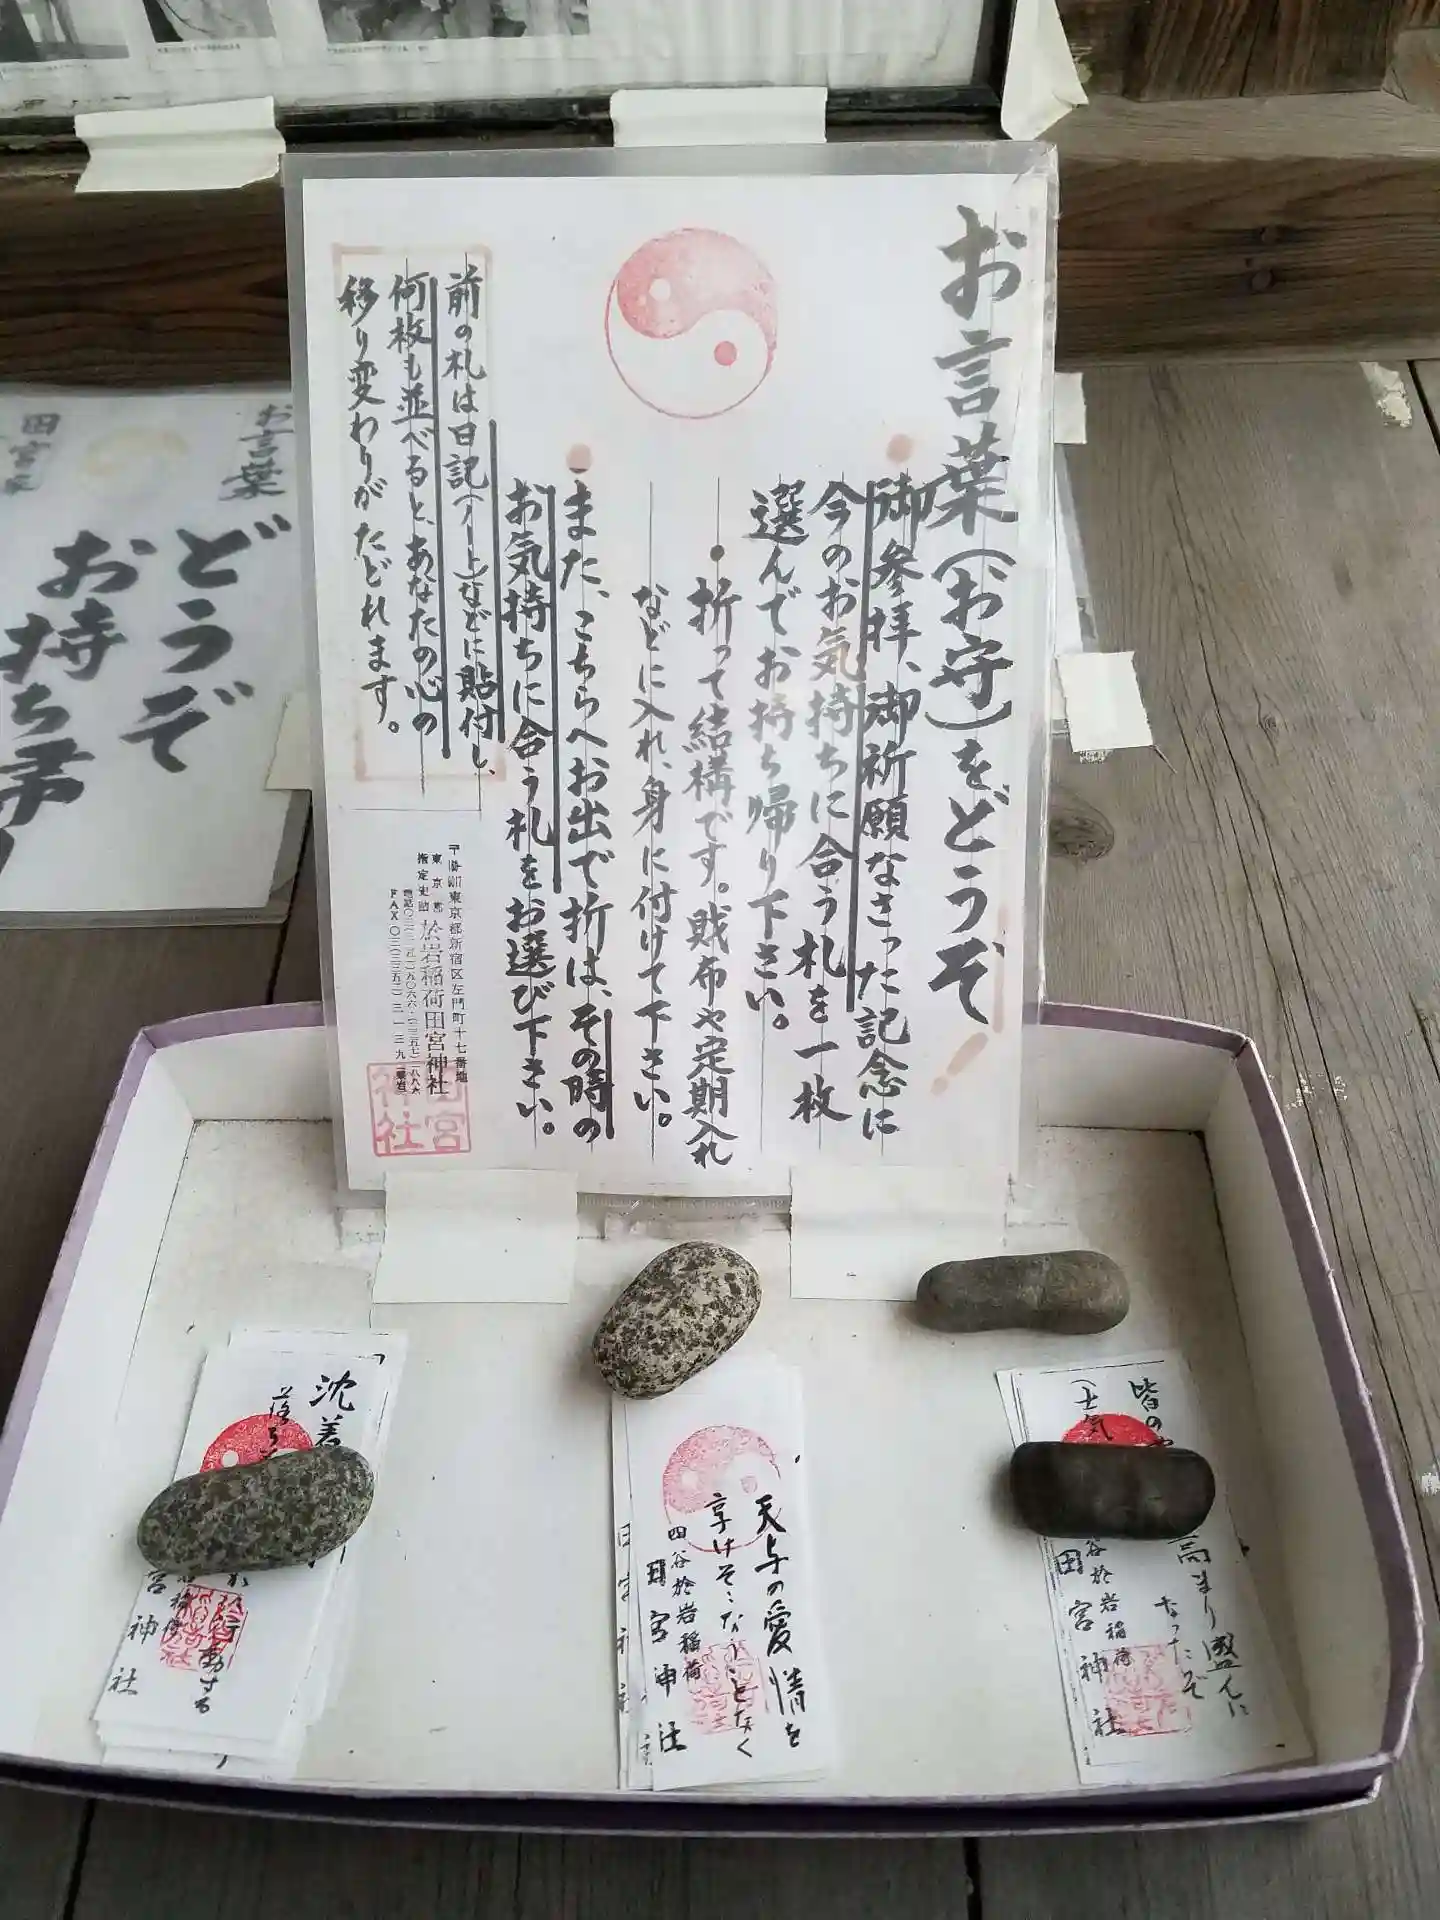 お言葉(お守)をどうぞ!
御参拝、御祈願なさった記念に
今のお気持ちに合う札を一枚
選んでお持ち帰り下さい。
・折って結構です。財布や定期入れ
などに入れ、身に付けて下さい。
また、こちらへお出で折は、その時の
お気持ちに合う札をお選び下さい。
前の札は日記(ノート)などに貼付し、
何枚も並べると、あなたの心の
移り変わりがたどれます。
東京都新宿区左門町十七番地
東京都
指定史蹟
於岩稲荷田宮神社
田宮神社
お言葉
どうぞ
お持ち帰り
田宮
沈着
落ち
行動する
宮神社
天与の愛情を
享けそこなうことなく
四谷於岩稲荷
田宮神社
皆のや
(士気
高まり盛んに
なったぞ
谷於岩稲荷
田宮神社